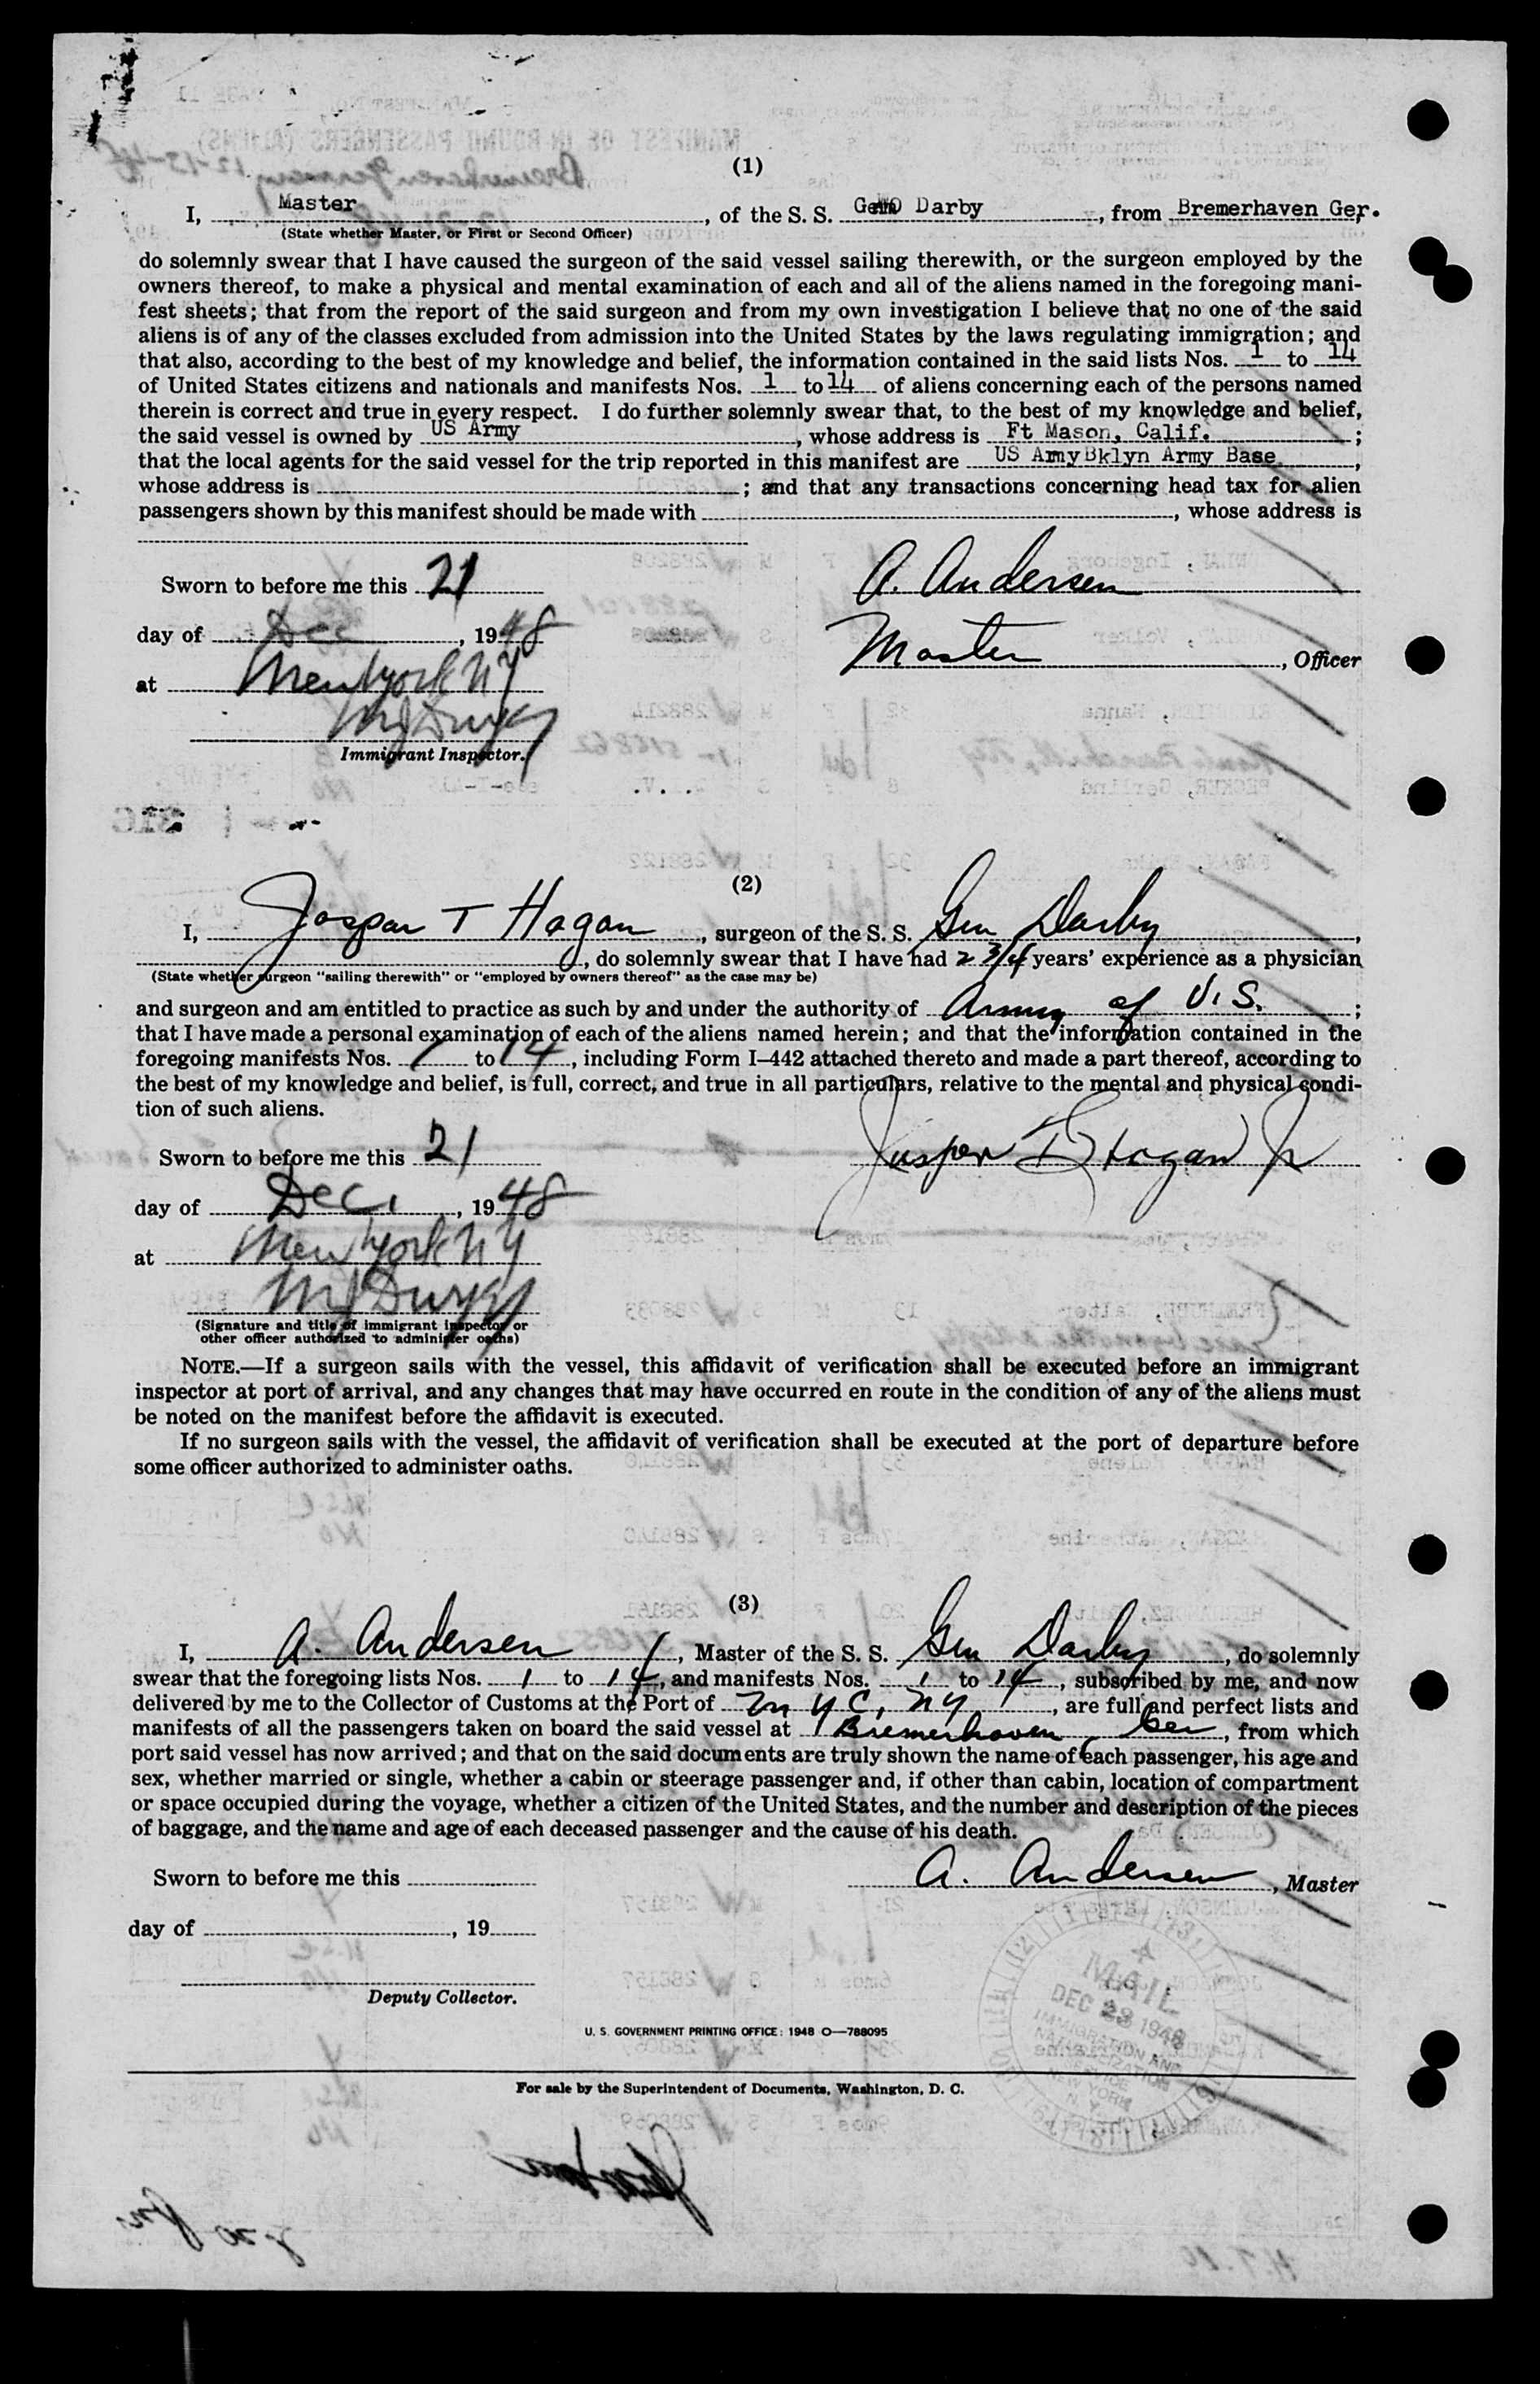 (1)
I, Master, of the S. S. Gen O Darby, from Bremerhaven Ger.
(State whether Master, or First or Second Officer)
do solemnly swear that I have caused the surgeon of the said vessel sailing therewith, or the surgeon employed by the
owners thereof, to make a physical and mental examination of each and all of the aliens named in the foregoing mani-
fest sheets; that from the report of the said surgeon and from my own investigation I believe that no one of the said
aliens is of any of the classes excluded from admission into the United States by the laws regulating immigration; and
that also, according to the best of my knowledge and belief, the information contained in the said lists Nos. 1 to 14
of United States citizens and nationals and manifests Nos. 1 to 14 of aliens concerning each of the persons named
therein is correct and true in every respect. I do further solemnly swear that, to the best of my knowledge and belief,
the said vessel is owned by US Army, whose address is Ft Mason, Calif. ;
that the local agents for the said vessel for the trip reported in this manifest are US Army Bklyn Army Base,
whose address is ; and that any transactions concerning head tax for alien
passengers shown by this manifest should be made with , whose address is
A. Andersen
Sworn to before me this 21
day of Dec, 1948
Master, Officer
at New York NY
Immigrant Inspector.
(2)
I, Jasper T Hogan, surgeon of the S. S. Gen Darby,
, do solemnly swear that I have had 2 3/4 years' experience as a physician
(State whether surgeon "sailing therewith" or "employed by owners thereof" as the case may be)
and surgeon and am entitled to practice as such by and under the authority of Army of U.S. ;
that I have made a personal examination of each of the aliens named herein; and that the information contained in the
foregoing manifests Nos. 1 to 14, including Form I-442 attached thereto and made a part thereof, according to
the best of my knowledge and belief, is full, correct, and true in all particulars, relative to the mental and physical condi-
tion of such aliens.
Jasper T Hogan Jr
Sworn to before me this 21
day of Dec, 1948
at New York NY
(Signature and title of immigrant inspector or
other officer authorized to administer oaths)
NOTE.—If a surgeon sails with the vessel, this affidavit of verification shall be executed before an immigrant
inspector at port of arrival, and any changes that may have occurred en route in the condition of any of the aliens must
be noted on the manifest before the affidavit is executed.
If no surgeon sails with the vessel, the affidavit of verification shall be executed at the port of departure before
some officer authorized to administer oaths.
(3)
I, A. Andersen, Master of the S. S. Gen Darby, do solemnly
swear that the foregoing lists Nos. 1 to 14, and manifests Nos. 1 to 14, subscribed by me, and now
delivered by me to the Collector of Customs at the Port of N Y C, NY, are full and perfect lists and
manifests of all the passengers taken on board the said vessel at Bremerhaven Ger, from which
port said vessel has now arrived; and that on the said documents are truly shown the name of each passenger, his age and
sex, whether married or single, whether a cabin or steerage passenger and, if other than cabin, location of compartment
or space occupied during the voyage, whether a citizen of the United States, and the number and description of the pieces
of baggage, and the name and age of each deceased passenger and the cause of his death.
A. Andersen, Master
Sworn to before me this
day of , 19
Deputy Collector.
MAIL
DEC 23 1948
IMMIGRATION AND
NATURALIZATION
SERVICE
NEW YORK
N. Y.
U. S. GOVERNMENT PRINTING OFFICE: 1948 O—788095
For sale by the Superintendent of Documents, Washington, D. C.